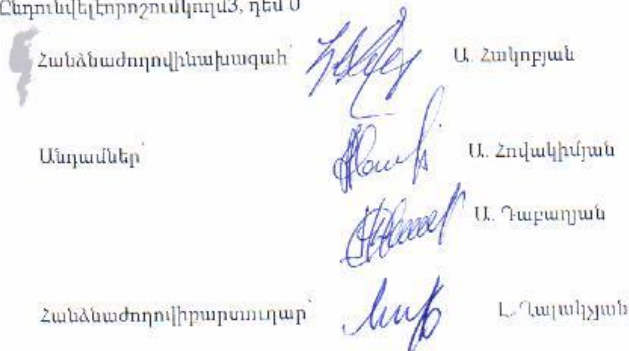 Ընդունվել է որոշում կողմ 3, դեմ 0
Հանձնաժողովի նախագահ՝ Ա. Հակոբյան
Անդամներ՝ Ա. Հովակիմյան
Ա. Դաբաղյան
Հանձնաժողովի քարտուղար՝ Լ. Ղալակչյան